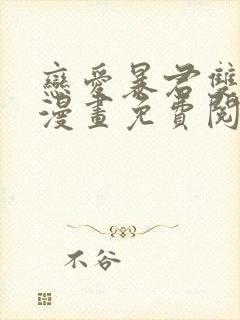 戀愛暴君雙
漫畫免費閱
不谷